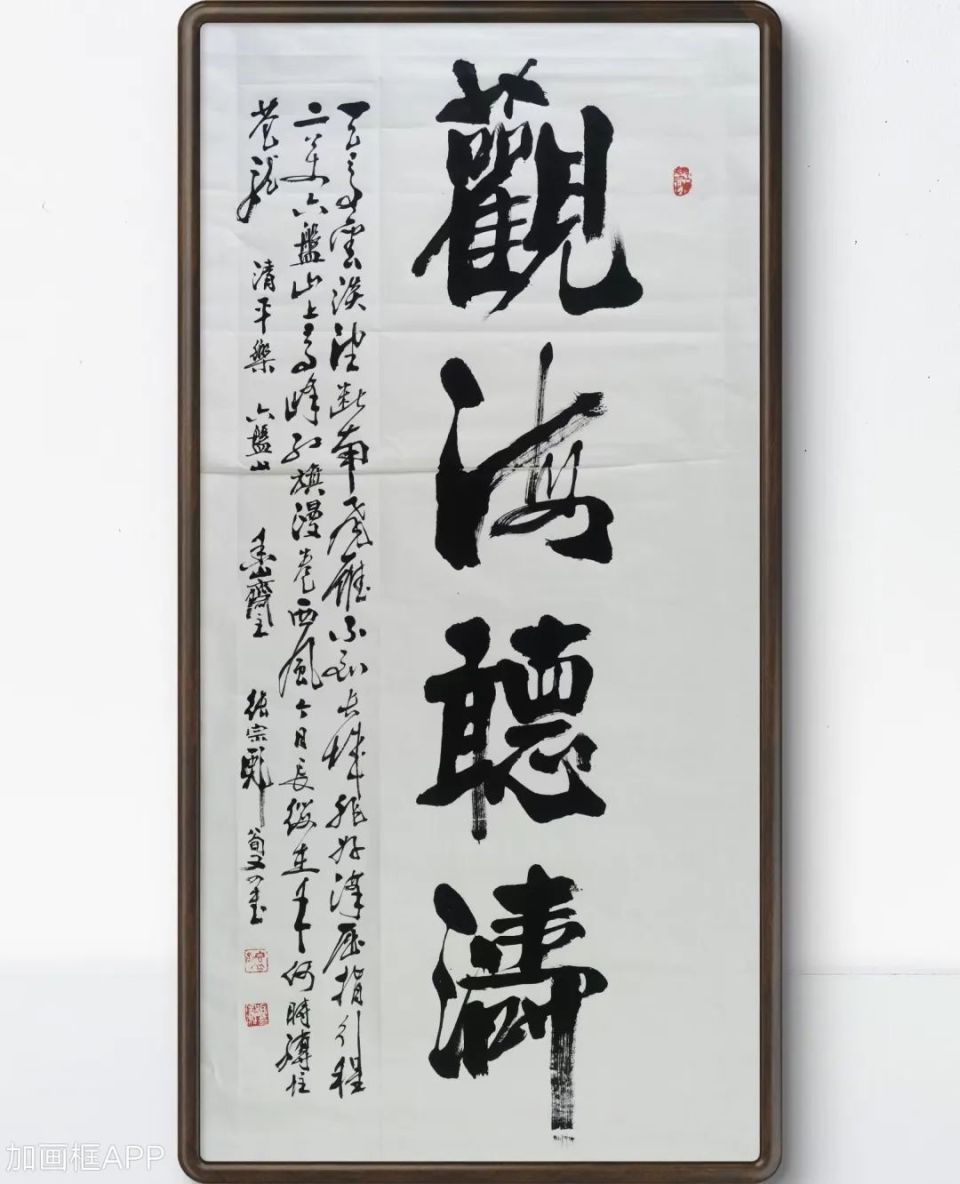 觀海聽濤
天高雲淡望斷南飛雁不到长城非好漢屈指行程
二万六盤山上高峰红旗漫卷西風今日長缨在手何時縛住
苍龍 清平樂 六盤山 齋主 張宗彪
加画框APP